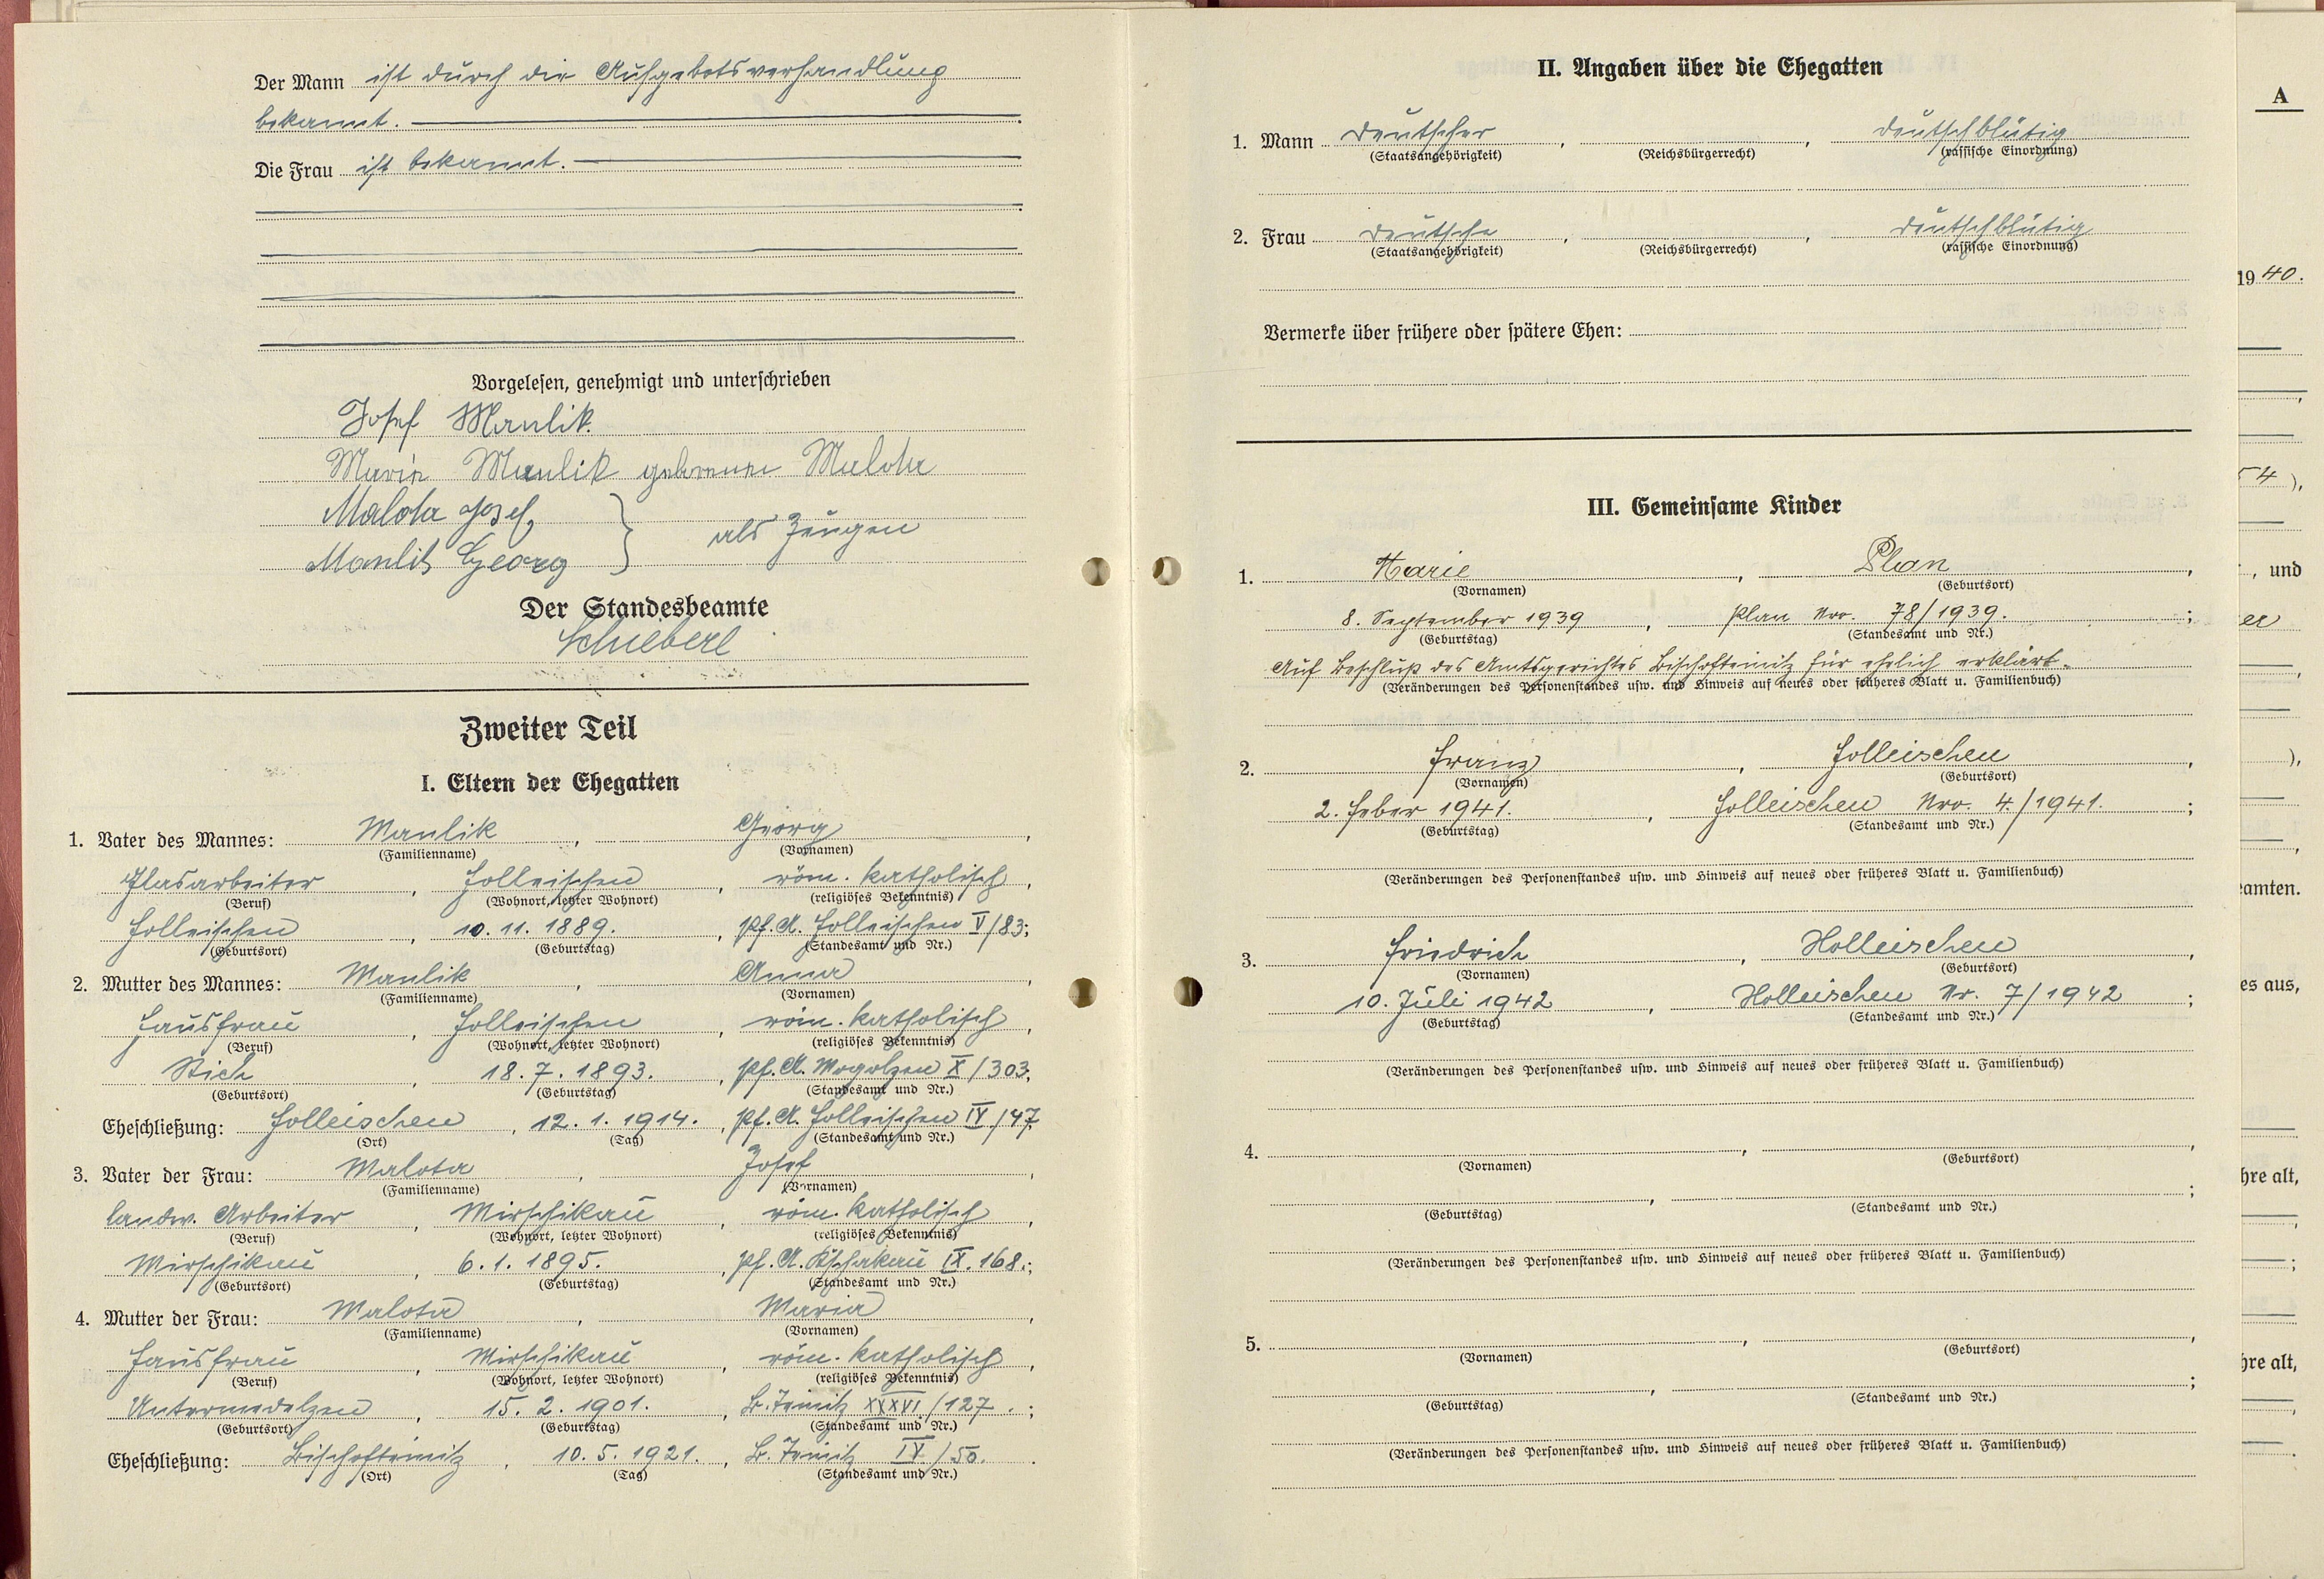 Der Mann ist durch die Aufgebotsverhandlung
bekannt.
Die Frau ist bekannt.
Vorgelesen, genehmigt und unterschrieben
Josef Maulik.
Marie Maulik geborenne Malota
Malota Josef,
Maulik Georg } als Zeugen
Der Standesbeamte
Schieberl
Zweiter Teil
I. Eltern der Ehegatten
1. Vater des Mannes: Maulik, Georg,
(Familienname) (Vornamen)
Glasarbeiter, Holleischen, röm. katholisch,
(Beruf) (Wohnort, letzter Wohnort) (religiöses Bekenntnis)
Holleischen, 10.11.1889., Pf.A. Holleischen V/83;
(Geburtsort) (Geburtstag) (Standesamt und Nr.)
2. Mutter des Mannes: Maulik, Anna,
(Familienname) (Vornamen)
Hausfrau, Holleischen, röm. katholisch,
(Beruf) (Wohnort, letzter Wohnort) (religiöses Bekenntnis)
Stich, 18.7.1893., Pf.A. Mogolzen X/303;
(Geburtsort) (Geburtstag) (Standesamt und Nr.)
Eheschließung: Holleischen, 12.1.1914., Pf.A. Holleischen IV/47.
(Ort) (Tag) (Standesamt und Nr.)
3. Vater der Frau: Malota, Josef,
(Familienname) (Vornamen)
landw. Arbeiter, Mirschikau, röm. katholisch,
(Beruf) (Wohnort, letzter Wohnort) (religiöses Bekenntnis)
Mirschikau, 6.1.1895., Pf.A. IX.168.;
(Geburtsort) (Geburtstag) (Standesamt und Nr.)
4. Mutter der Frau: Malota, Maria,
(Familienname) (Vornamen)
Hausfrau, Mirschikau, röm. katholisch,
(Beruf) (Wohnort, letzter Wohnort) (religiöses Bekenntnis)
Untermedelzen, 15.2.1901., B.Teinitz XXXVI/127.;
(Geburtsort) (Geburtstag) (Standesamt und Nr.)
Eheschließung: Bischofteinitz, 10.5.1921., B.Teinitz IV/50.
(Ort) (Tag) (Standesamt und Nr.)
II. Angaben über die Ehegatten
1. Mann Deutscher, , deutschblütig
(Staatsangehörigkeit) (Reichsbürgerrecht) (rassische Einordnung)
2. Frau Deutsche, , deutschblütig
(Staatsangehörigkeit) (Reichsbürgerrecht) (rassische Einordnung)
Vermerke über frühere oder spätere Ehen:
III. Gemeinsame Kinder
1. Marie, Plan,
(Vornamen) (Geburtsort)
8. September 1939, Plan Nro. 78/1939.;
(Geburtstag) (Standesamt und Nr.)
Auf Beschluß des Amtsgerichtes Bischofteinitz für ehelich erklärt.
(Veränderungen des Personenstandes usw. und Hinweis auf neues oder früheres Blatt u. Familienbuch)
2. Franz, Holleischen,
(Vornamen) (Geburtsort)
2. Feber 1941., Holleischen Nro. 4./1941.;
(Geburtstag) (Standesamt und Nr.)
(Veränderungen des Personenstandes usw. und Hinweis auf neues oder früheres Blatt u. Familienbuch)
3. Friedrich, Holleischen,
(Vornamen) (Geburtsort)
10. Juli 1942, Holleischen Nr. 7/1942;
(Geburtstag) (Standesamt und Nr.)
(Veränderungen des Personenstandes usw. und Hinweis auf neues oder früheres Blatt u. Familienbuch)
4. , ,
(Vornamen) (Geburtsort)
, ;
(Geburtstag) (Standesamt und Nr.)
(Veränderungen des Personenstandes usw. und Hinweis auf neues oder früheres Blatt u. Familienbuch)
5. , ,
(Vornamen) (Geburtsort)
, ;
(Geburtstag) (Standesamt und Nr.)
(Veränderungen des Personenstandes usw. und Hinweis auf neues oder früheres Blatt u. Familienbuch)
A
1940.
54),
, und
er
),
eamten.
es aus,
hre alt,
hre alt,